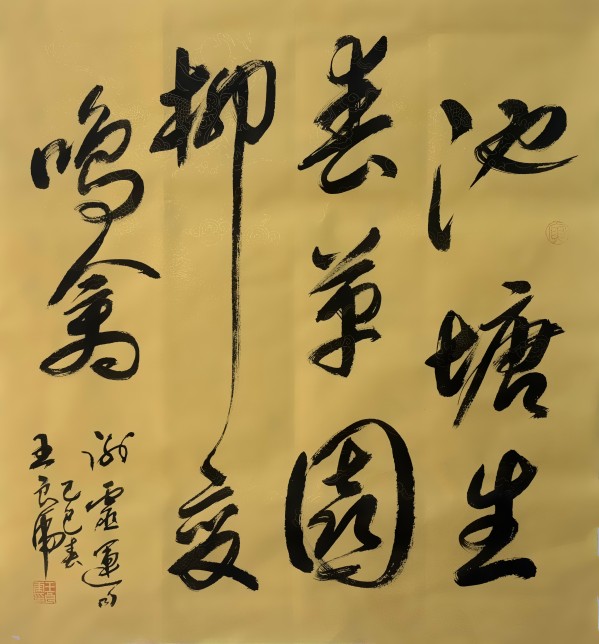 池塘生
春草園
柳變
鳴禽
謝靈運句
乙巳春
王良虎